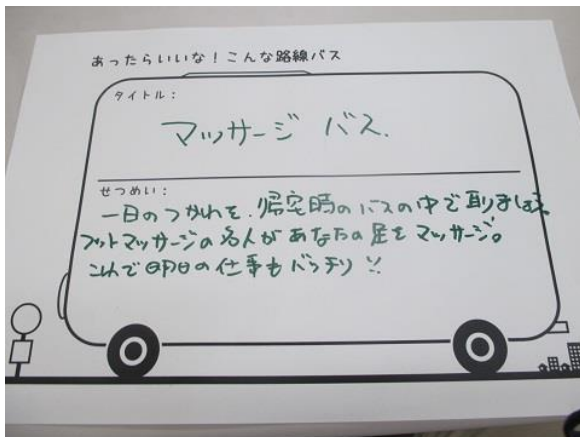 あったらいいな！こんな路線バス
タイトル：
マッサージ バス.
せつめい：
一日のつかれを、帰宅時のバスの中で取りましょう。
フットマッサージの名人があなたの足をマッサージ。
これで明日の仕事もバッチリ!!